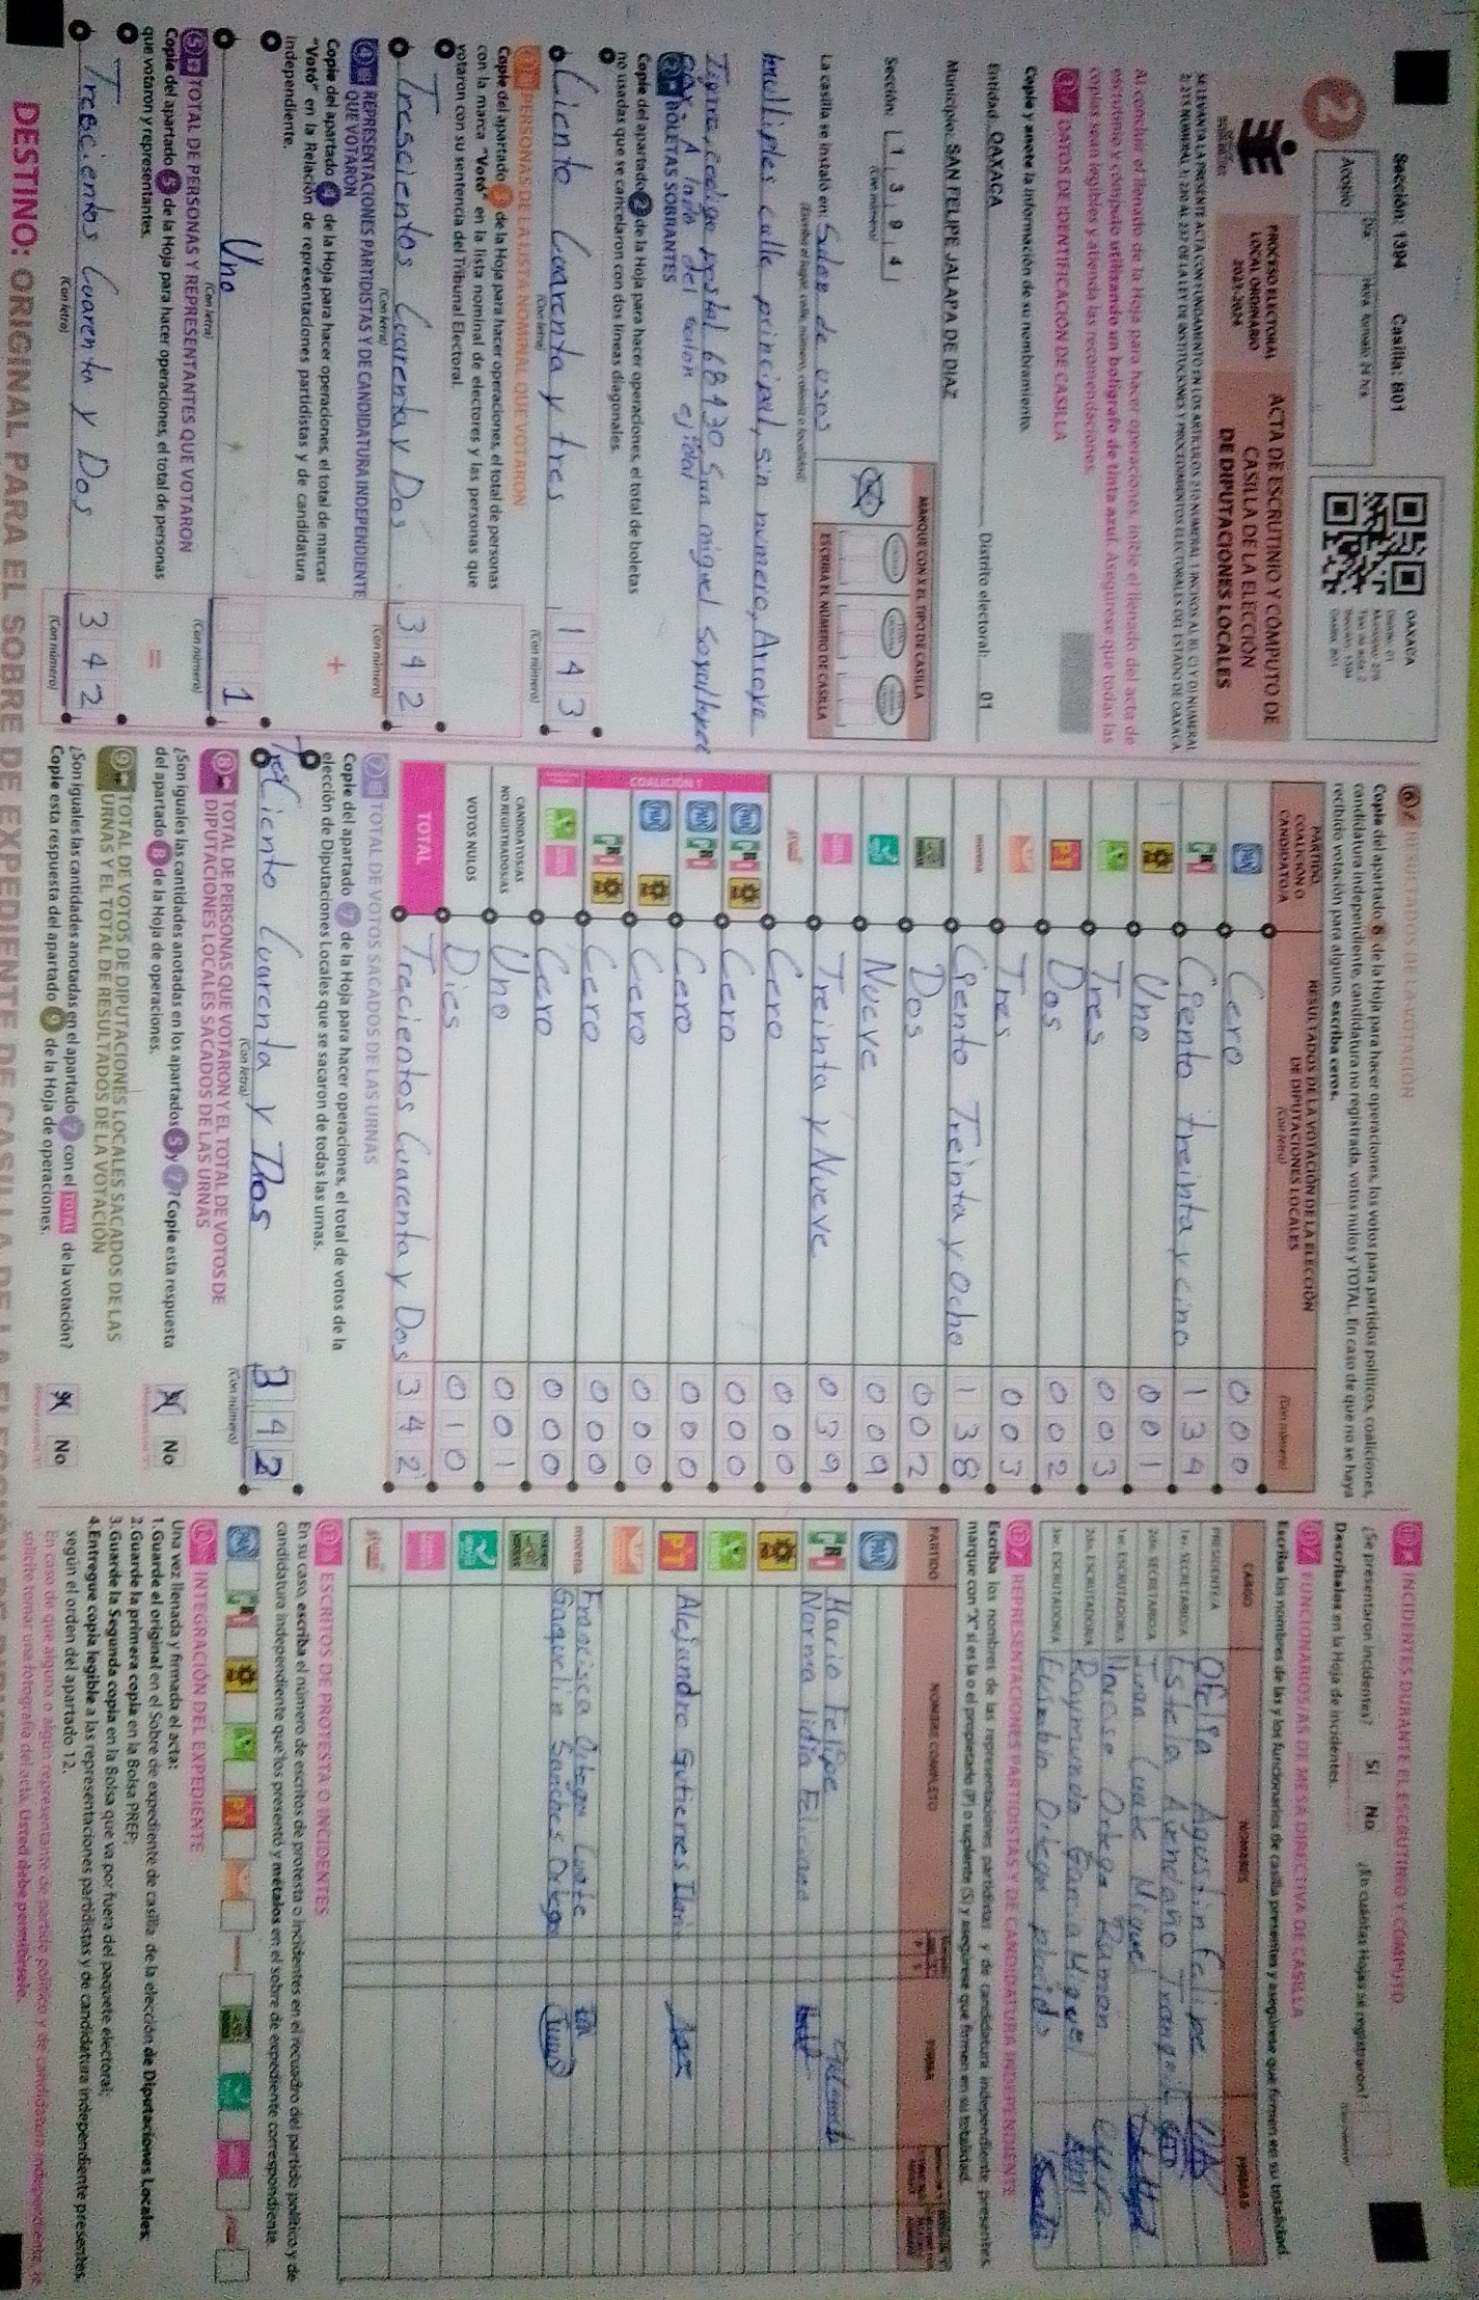 Sección: 1394 Casilla: B01
2
Día Hora formato 24 hrs
Acopio
OAXACA
PROCESO ELECTORAL
LOCAL ORDINARIO
2023-2024
ACTA DE ESCRUTINIO Y CÓMPUTO DE
CASILLA DE LA ELECCIÓN
DE DIPUTACIONES LOCALES
Al concluir el llenado de la Hoja para hacer operaciones, inicie el llenado del acta de
escrutinio y cómputo utilizando un bolígrafo de tinta azul. Asegúrese que todas las
copias sean legibles y atienda las recomendaciones.
1 DATOS DE IDENTIFICACIÓN DE CASILLA
Copie y anote la información de su nombramiento.
Entidad: OAXACA Distrito electoral: 01
Municipio: SAN FELIPE JALAPA DE DÍAZ
Sección: 1 3 9 4
(Con número)
MARQUE CON X EL TIPO DE CASILLA
ESCRIBA EL NÚMERO DE CASILLA
La casilla se instaló en: Salon de usos
(Escriba el lugar, calle, número, colonia o localidad)
multiples calle principal, sin numero, Arroyo
Tigre, codigo postal 68430 San miguel Soyaltepec
oax. A lado del salon ejidal
2 BOLETAS SOBRANTES
Copie del apartado 2 de la Hoja para hacer operaciones, el total de boletas
no usadas que se cancelaron con dos líneas diagonales.
Ciento Cuarenta y tres 1 4 3
(Con letra) (Con número)
3 PERSONAS DE LA LISTA NOMINAL QUE VOTARON
Copie del apartado 3 de la Hoja para hacer operaciones, el total de personas
con la marca "Votó" en la lista nominal de electores y las personas que
votaron con su sentencia del Tribunal Electoral.
Trescientos Cuarenta y Dos 3 4 2
(Con letra) (Con número)
4 REPRESENTACIONES PARTIDISTAS Y DE CANDIDATURA INDEPENDIENTE
QUE VOTARON
Copie del apartado 4 de la Hoja para hacer operaciones, el total de marcas
"Votó" en la Relación de representaciones partidistas y de candidatura
independiente.
+
Uno 1
(Con letra) (Con número)
5 TOTAL DE PERSONAS Y REPRESENTANTES QUE VOTARON
Copie del apartado 5 de la Hoja para hacer operaciones, el total de personas
que votaron y representantes.
=
Trescientos Cuarenta y Dos 3 4 2
(Con letra) (Con número)
6 RESULTADOS DE LA VOTACIÓN
Copie del apartado 6 de la Hoja para hacer operaciones, los votos para partidos políticos, coaliciones,
candidatura independiente, candidatura no registrada, votos nulos y TOTAL. En caso de que no se haya
recibido votación para alguno, escriba ceros.
PARTIDO, COALICIÓN O CANDIDATO/A
RESULTADOS DE LA VOTACIÓN DE LA ELECCIÓN DE DIPUTACIONES LOCALES
(Con letra) (Con número)
PAN Cero 000
PRI Ciento treinta y cino 134
Uno 001
Tres 003
PT Dos 002
Tres 003
morena Ciento Treinta y Ocho 138
Dos 002
Nueve 009
Treinta y Nueve 039
Cero 000
COALICIÓN
PAN PRI Cero 000
PAN PRI Cero 000
PAN Cero 000
PRI Cero 000
Cero 000
CANDIDATOS/AS NO REGISTRADOS/AS Uno 001
VOTOS NULOS Dies 010
TOTAL Trecientos Cuarenta y Dos 342
7 TOTAL DE VOTOS SACADOS DE LAS URNAS
Copie del apartado 7 de la Hoja para hacer operaciones, el total de votos de la
elección de Diputaciones Locales que se sacaron de todas las urnas.
Tresciento Cuarenta y Dos 3 4 2
(Con letra) (Con número)
8 TOTAL DE PERSONAS QUE VOTARON Y EL TOTAL DE VOTOS DE
DIPUTACIONES LOCALES SACADOS DE LAS URNAS
¿Son iguales las cantidades anotadas en los apartados 5 y 7? Copie esta respuesta
del apartado 8 de la Hoja de operaciones. No
9 TOTAL DE VOTOS DE DIPUTACIONES LOCALES SACADOS DE LAS
URNAS Y EL TOTAL DE RESULTADOS DE LA VOTACIÓN
¿Son iguales las cantidades anotadas en el apartado 7 con el TOTAL de la votación?
Copie esta respuesta del apartado 9 de la Hoja de operaciones. No
10 INCIDENTES DURANTE EL ESCRUTINIO Y CÓMPUTO
¿Se presentaron incidentes? Sí No ¿En cuántas Hojas se registraron?
Descríbalos en la Hoja de incidentes.
11 FUNCIONARIOS/AS DE MESA DIRECTIVA DE CASILLA
Escriba los nombres de las y los funcionarios de casilla presentes y asegúrese que firmen en su totalidad
CARGO NOMBRES FIRMAS
PRESIDENTE/A Ofelia Agustin Felipe
1er. SECRETARIO/A Estela Avendaño
2do. SECRETARIO/A Juan Miguel
1er. ESCRUTADOR/A Narciso Ortega Ramon
2do. ESCRUTADOR/A Raymundo Garcia Miguel
3er. ESCRUTADOR/A Eusebio Ortega placido
12 REPRESENTACIONES PARTIDISTAS Y DE CANDIDATURA INDEPENDIENTE
Escriba los nombres de las representaciones partidistas y de candidatura independiente presentes,
marque con "X" si es la o el propietario (P) o suplente (S) y asegúrese que firmen en su totalidad.
PARTIDO NOMBRE COMPLETO FIRMA
PAN
PRI Mario Felipe
Norma lidia Feliciano
PT Alejandro Gutierres
morena Francisca Ortega
Sanches Ortega
13 ESCRITOS DE PROTESTA O INCIDENTES
En su caso, escriba el número de escritos de protesta o incidentes en el recuadro del partido político y de
candidatura independiente que los presentó y métalos en el sobre de expediente correspondiente.
PAN PRI PT
INTEGRACIÓN DEL EXPEDIENTE
Una vez llenada y firmada el acta:
1.Guarde el original en el Sobre de expediente de casilla de la elección de Diputaciones Locales;
2.Guarde la primera copia en la Bolsa PREP;
3.Guarde la Segunda copia en la Bolsa que va por fuera del paquete electoral;
4.Entregue copia legible a las representaciones partidistas y de candidatura independiente presentes,
según el orden del apartado 12.
En caso de que alguna o algún representante de partido político y de candidatura independiente, se
solicite tomar una fotografía del acta, Usted debe permitírselo.
DESTINO: ORIGINAL PARA EL SOBRE DE EXPEDIENTE DE CASILLA DE LA